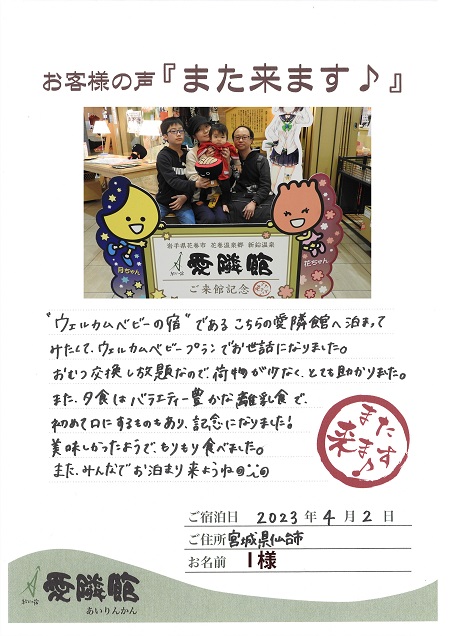 お客様の声『また来ます♪』
月ちゃん
花ちゃん
岩手県花巻市 花巻温泉郷 新鉛温泉
愛隣館
ご来館記念
"ウェルカムベビーの宿"であるこちらの愛隣館へ泊まって
みたくて、ウェルカムベビープランでお世話になりました。
おむつ交換し放題なので、荷物が少なく、とても助かりました。
また、夕食はバラエティー豊かな離乳食で、
初めて口にするものもあり、記念になりました!
美味しかったようで、もりもり食べました。
また、みんなでお泊まり来ようね
また
来ます♪
ご宿泊日 2023年4月2日
ご住所 宮城県仙台市
お名前 I様
愛隣館
あいりんかん